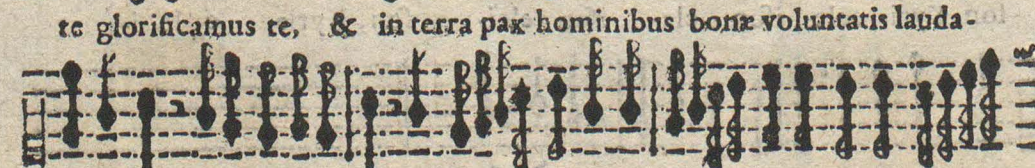 te glorificamus te, & in terra pax hominibus bonæ voluntatis lauda-